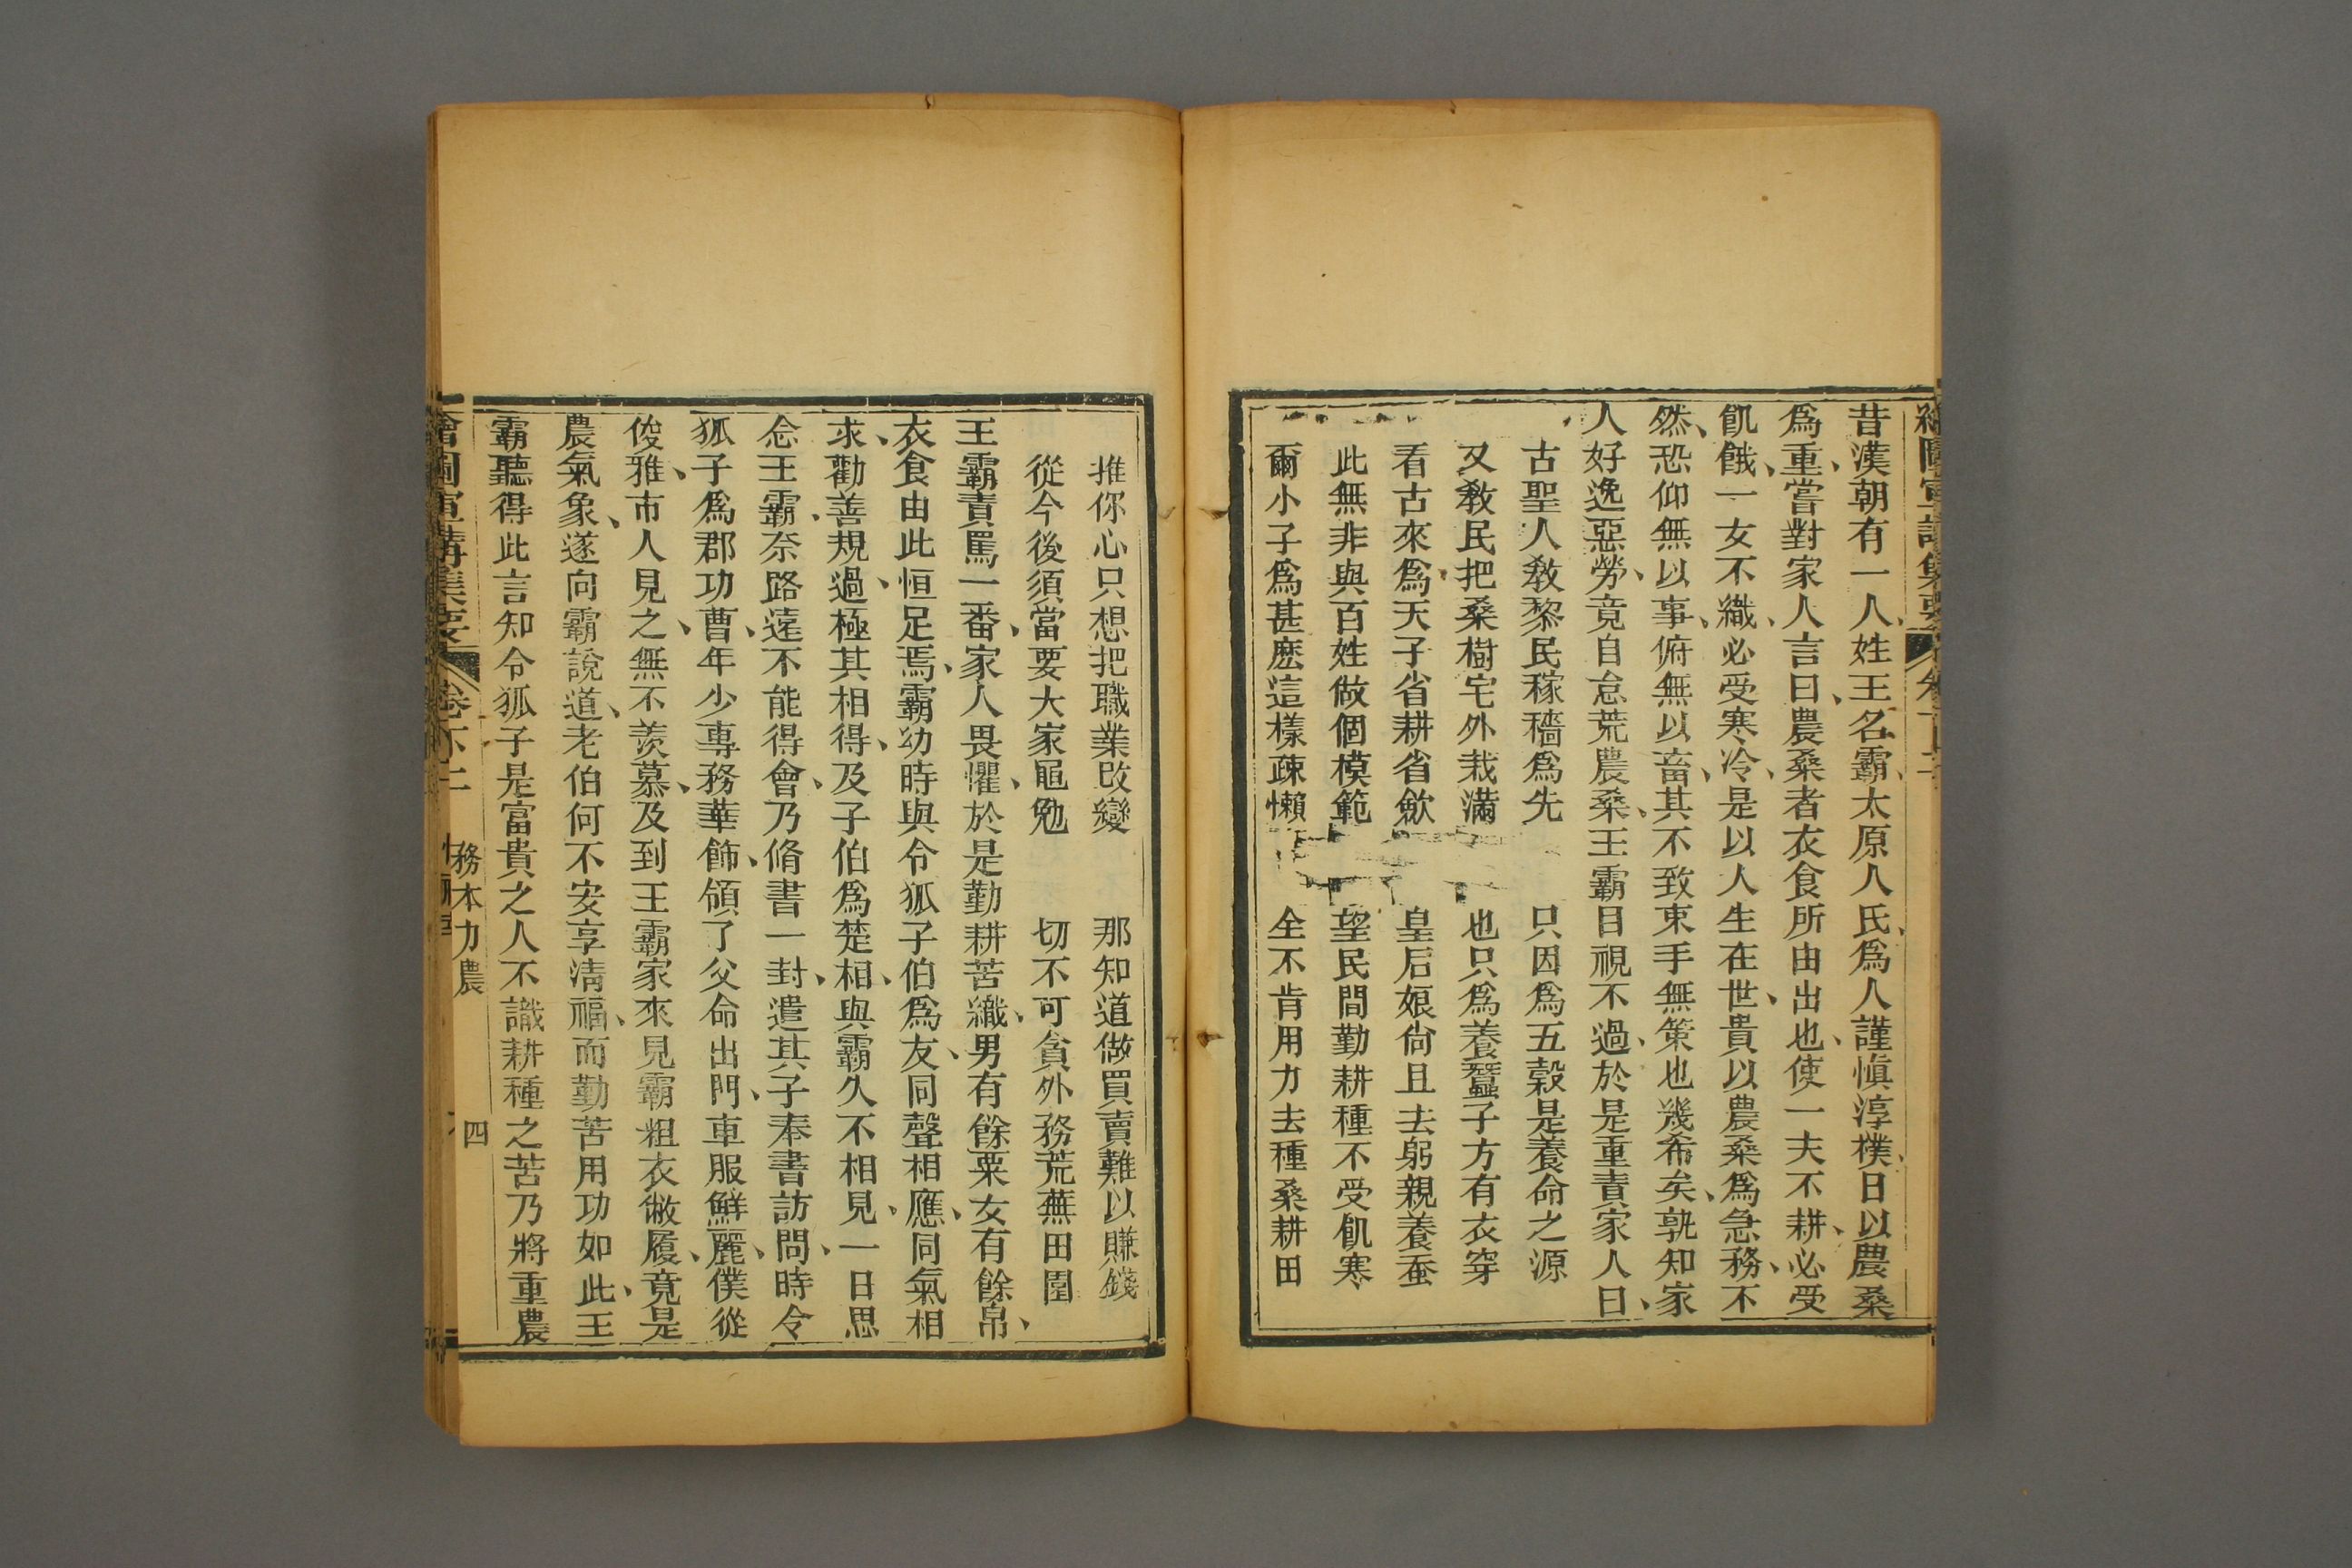 昔漢朝有一人、姓王名霸、太原人氏、爲人謹愼淳樸、日以農桑
爲重、嘗對家人言曰、農桑者衣食所由出也、使一夫不耕、必受
飢餓、一女不織、必受寒冷、是以人生在世、貴以農桑爲急務、不
然、恐仰無以事、俯無以畜、其不致束手無策也幾希矣、孰知家
人好逸惡勞、竟自怠荒農桑、王霸目視不過、於是重責家人曰、
古聖人敎黎民稼穡爲先　只因爲五穀是養命之源
又敎民把桑樹宅外栽滿　也只爲養蠶子方有衣穿
看古來爲天子省耕省歛　皇后娘尙且去躬親養蚕
此無非與百姓做個模範　望民間勤耕種不受飢寒
爾小子爲甚麽這樣疎懶　全不肯用力去種桑耕田
推你心只想把職業改變　那知道做買賣難以賺錢
從今後須當要大家黽勉　切不可貪外務荒蕪田園
王霸責罵一番、家人畏懼、於是勤耕苦織、男有餘粟女有餘帛、
衣食由此恒足焉、霸幼時與令狐子伯爲友、同聲相應、同氣相
求、勸善規過、極其相得、及子伯爲楚相、與霸久不相見、一日思
念王霸、奈路遠不能得會、乃脩書一封、遣其子奉書訪問、時令
狐子爲郡功曹、年少專務華飾、領了父命出門、車服鮮麗、僕從
俊雅、市人見之、無不羨慕、及到王霸家來見霸粗衣敝履、竟是
農氣象、遂向霸說道、老伯何不安享清福、而勤苦用功如此、王
霸聽得此言知令狐子是富貴之人不識耕種之苦乃將重農
務本力農
四